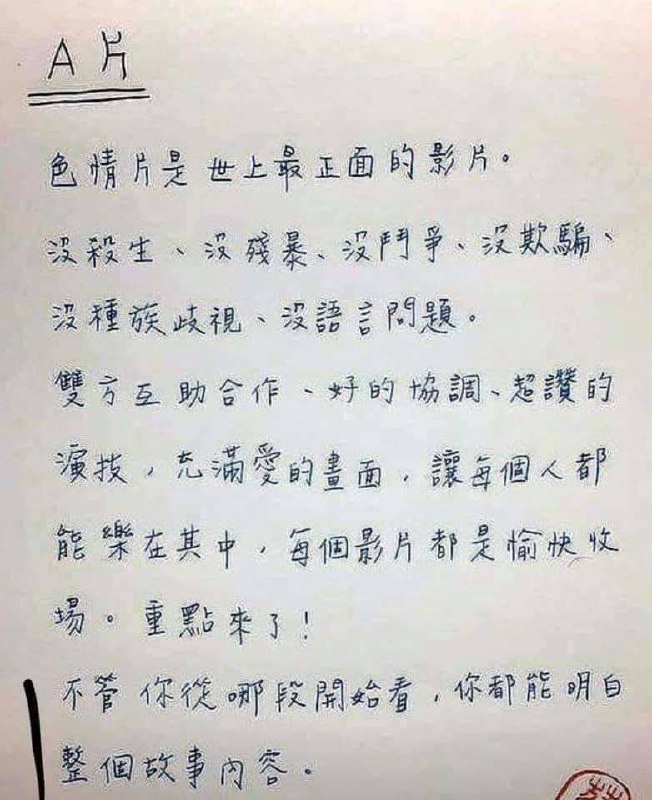 A片
色情片是世上最正面的影片。
沒殺生、沒殘暴、沒鬥爭、沒欺騙、
沒種族歧視、沒語言問題。
雙方互助合作、好的協調、超讚的
演技，充滿愛的畫面，讓每個人都
能樂在其中，每個影片都是愉快收
場。重點來了！
不管你從哪段開始看，你都能明白
整個故事內容。